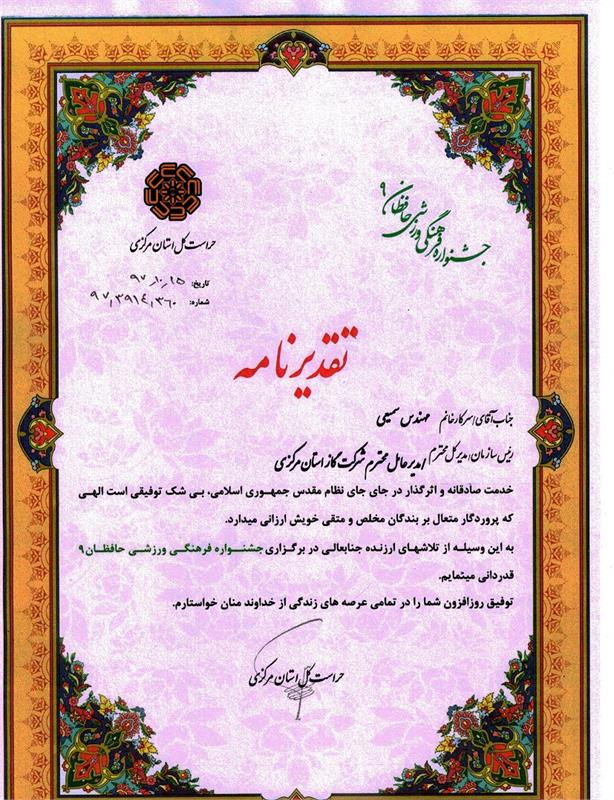 جشنواره فرهنگی ورزشی حافظان ۹
حراست کل استان مرکزی
تاریخ: ۹۷٫۱۰٫۱۵
شماره: ۹۷٫۳۹۱۴٫۳۶۰
تقدیرنامه
جناب آقای/سرکارخانم مهندس سمیعی
رئیس سازمان/مدیرکل محترم/مدیرعامل محترم شرکت گاز استان مرکزی
خدمت صادقانه و اثرگذار در جای جای نظام مقدس جمهوری اسلامی، بی شک توفیقی است الهی
که پروردگار متعال بر بندگان مخلص و متقی خویش ارزانی میدارد.
به این وسیله از تلاشهای ارزنده جنابعالی در برگزاری جشنواره فرهنگی ورزشی حافظان۹
قدردانی مینمایم.
توفیق روزافزون شما را در تمامی عرصه های زندگی از خداوند منان خواستارم.
حراست کل استان مرکزی